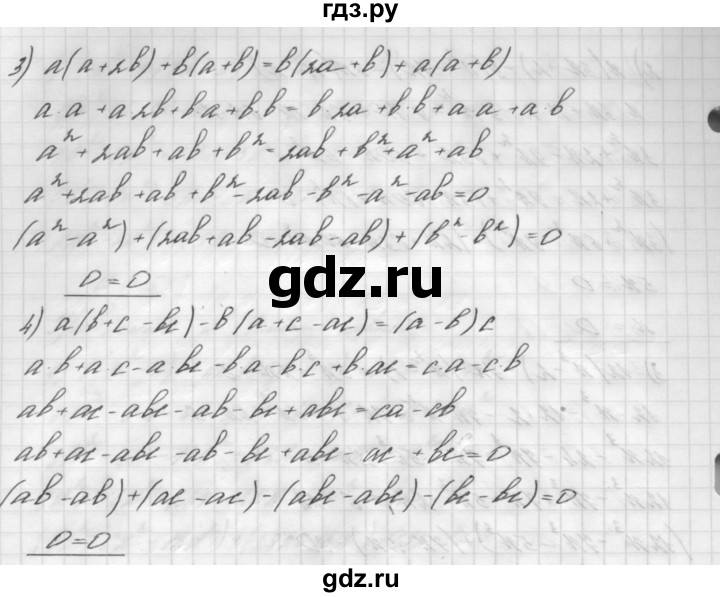 гдз.ру
3) a(a+2b)+b(a+b)=b(2a+b)+a(a+b)
a·a+a·2b+b·a+b·b=b·2a+b·b+a·a+a·b
a²+2ab+ab+b²=2ab+b²+a²+ab
a²+2ab+ab+b²-2ab-b²-a²-ab=0
(a²-a²)+(2ab+ab-2ab-ab)+(b²-b²)=0
0=0
gdz.ru
4) a(b+c-bc)-b(a+c-ac)=(a-b)c
a·b+a·c-a·bc-b·a-b·c+b·ac=c·a-c·b
ab+ac-abc-ab-bc+abc=ca-cb
ab+ac-abc-ab-bc+abc-ac+bc=0
(ab-ab)+(ac-ac)-(abc-abc)-(bc-bc)=0
0=0
gdz.ru